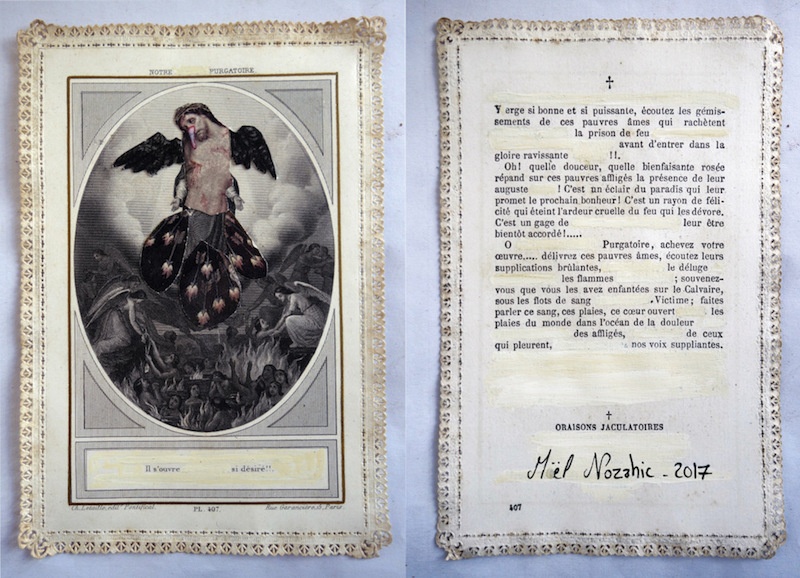 NOTRE PURGATOIRE
Il s'ouvre si désiré!!.
Ch. Letaille, edit.r Pontifical.
PL. 407.
Rue Garancière, 8, Paris
Y erge si bonne et si puissante, écoutez les gémis-
sements de ces pauvres âmes qui rachètent
la prison de feu
avant d'entrer dans la
gloire ravissante !!.
Oh! quelle douceur, quelle bienfaisante rosée
répand sur ces pauvres affligés la présence de leur
auguste ! C'est un éclair du paradis qui leur
promet le prochain bonheur! C'est un rayon de féli-
cité qui éteint l'ardeur cruelle du feu qui les dévore.
C'est un gage de leur être
bientôt accordé!.....
O Purgatoire, achevez votre
œuvre..... délivrez ces pauvres âmes, écoutez leurs
supplications brûlantes, le déluge
les flammes ; souvenez-
vous que vous les avez enfantées sur le Calvaire,
sous les flots de sang .Victime; faites
parler ce sang, ces plaies, ce cœur ouvert les
plaies du monde dans l'océan de la douleur
des affligés, de ceux
qui pleurent, nos voix suppliantes.
ORAISONS JACULATOIRES
Mël Nozahic - 2017
407